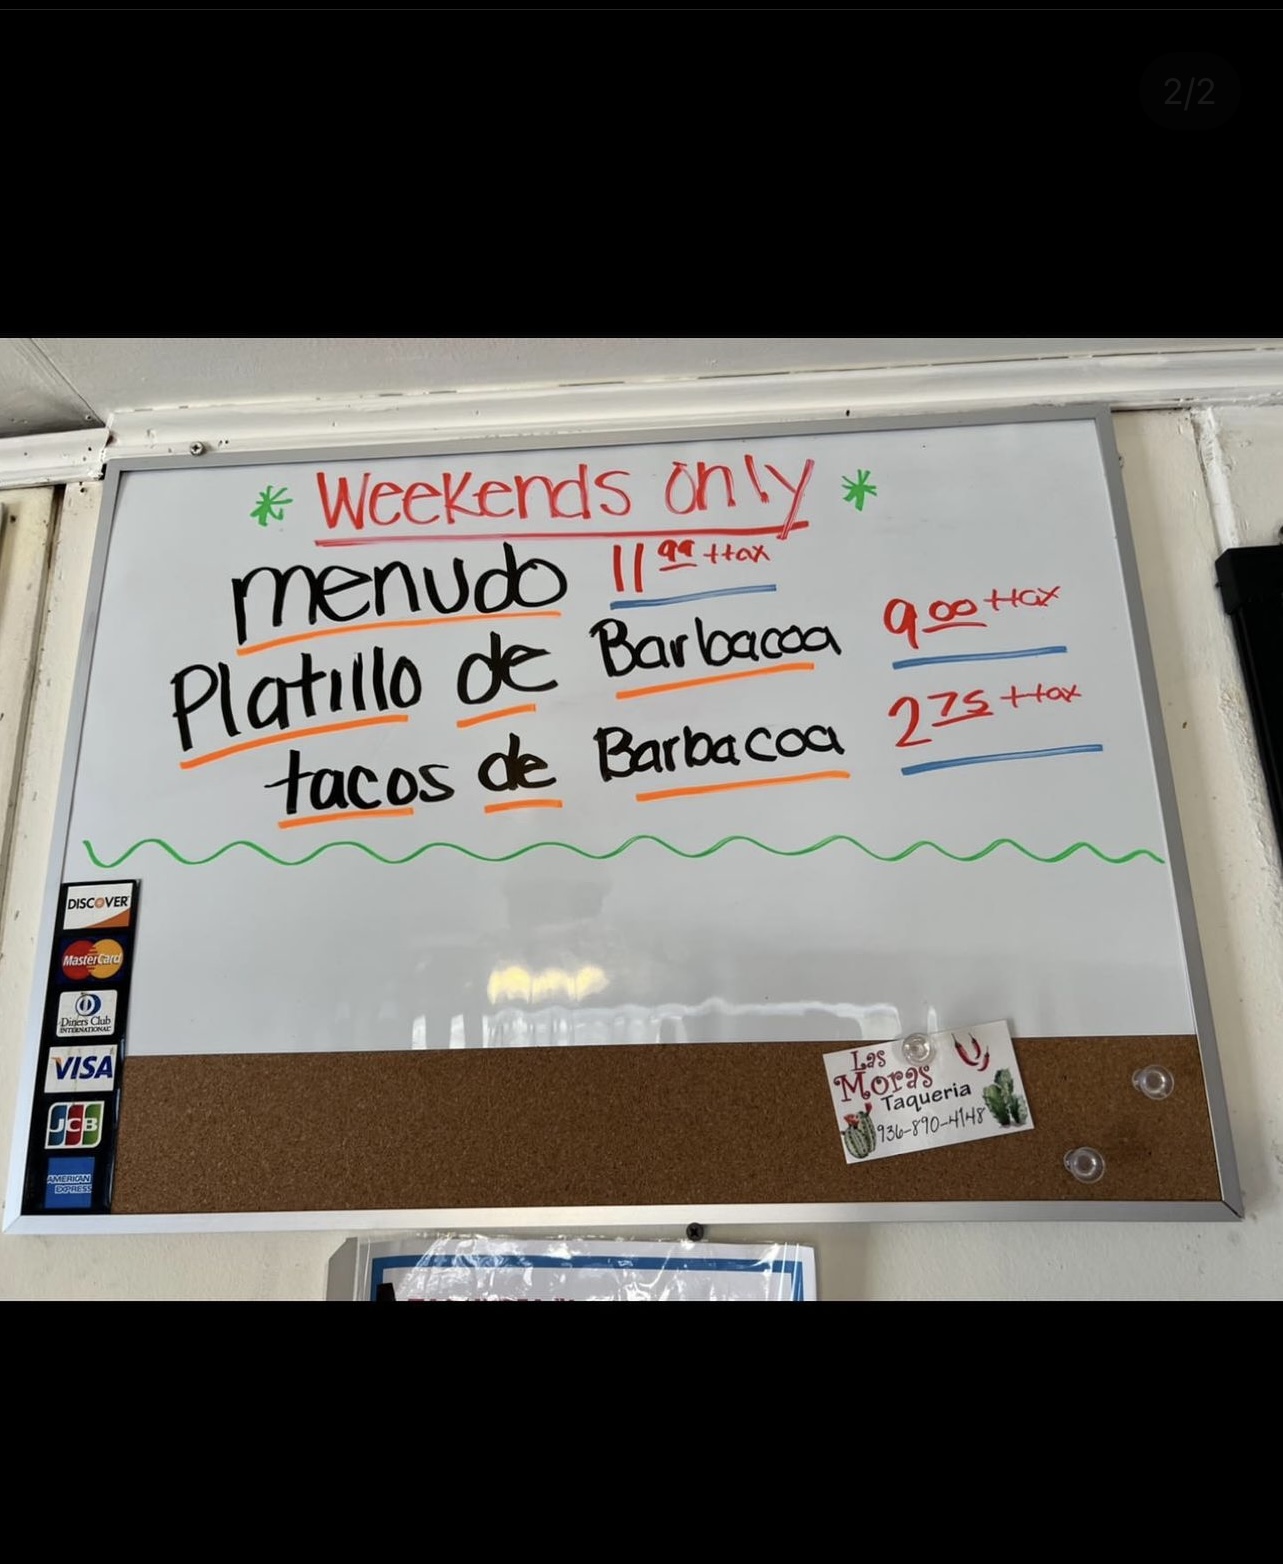 2/2
* Weekends only *
menudo 11 99 +tax
Platillo de Barbacoa 9 00 +tax
tacos de Barbacoa 2 75 +tax
DISCOVER
MasterCard
Diners Club
INTERNATIONAL
VISA
JCB
AMERICAN
EXPRESS
Las
Moras
Taqueria
936-890-4148